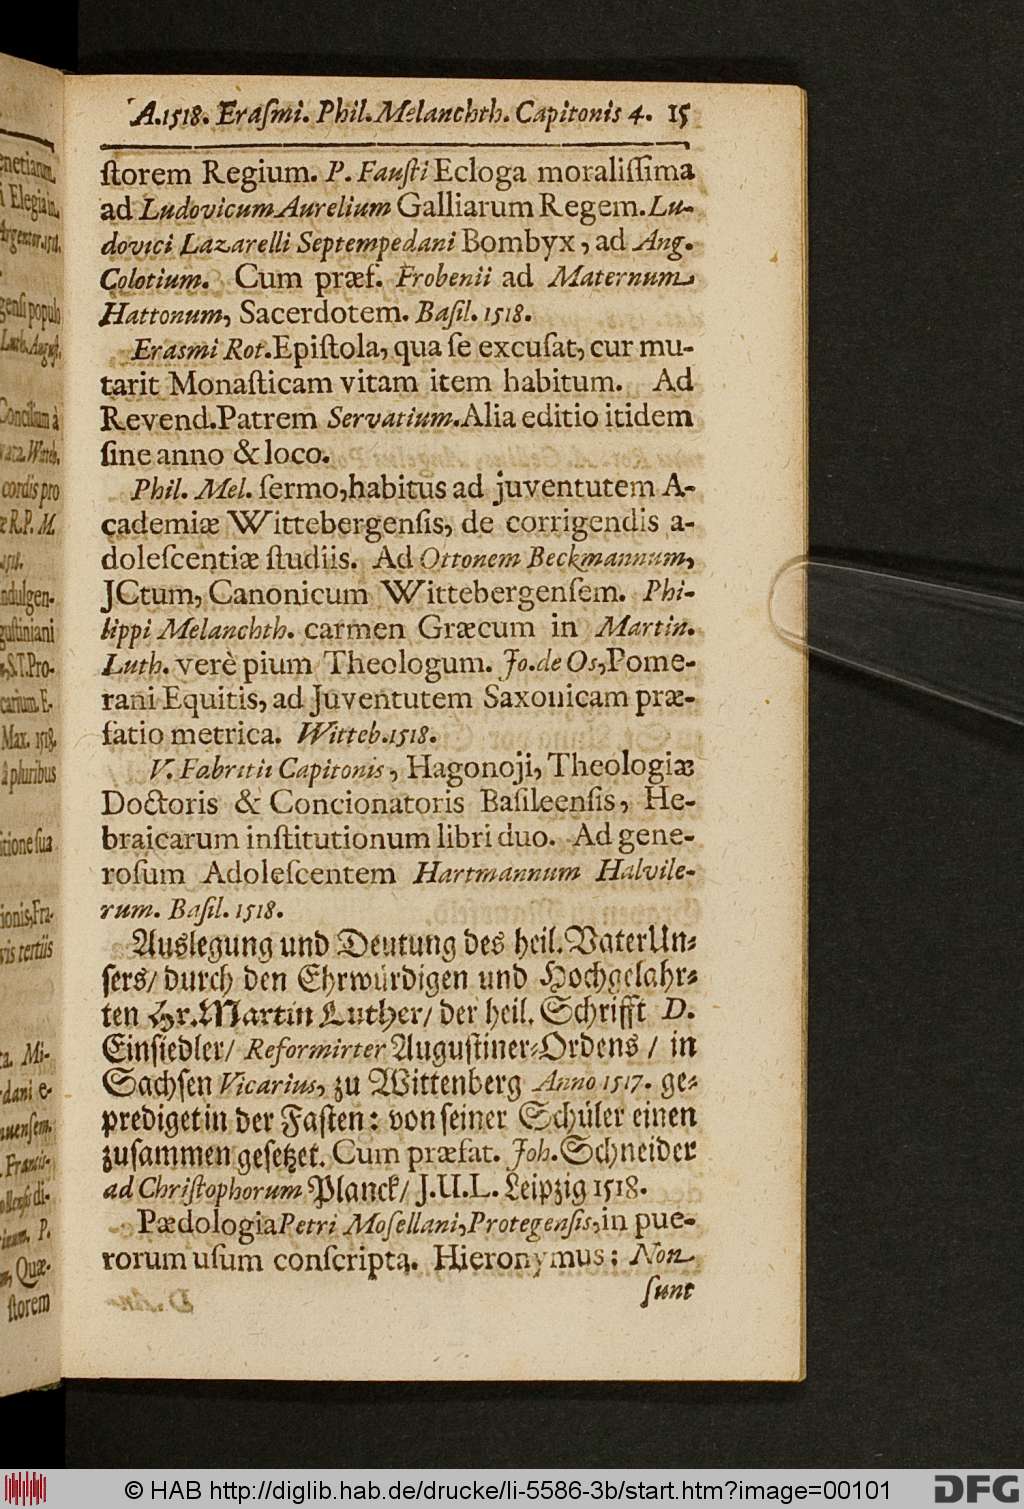 A.1518. Eraſmi. Phil. Melanchth. Capitonis 4. 15
ſtorem Regium. P. Fauſti Ecloga moraliſſima
ad Ludovicum Aurelium Galliarum Regem. Lu-
dovici Lazarelli Septempedani Bombyx, ad Ang.
Colotium. Cum præf. Frobenii ad Maternum
Hattonum, Sacerdotem. Baſil. 1518.
Erasmi Rot. Epiſtola, qua ſe excuſat, cur mu-
tarit Monaſticam vitam item habitum. Ad
Revend. Patrem Servatium. Alia editio itidem
ſine anno & loco.
Phil. Mel. ſermo, habitus ad juventutem A-
cademiæ Wittebergenſis, de corrigendis a-
doleſcentiæ ſtudiis. Ad Ottonem Beckmannum,
JCtum, Canonicum Wittebergenſem. Phi-
lippi Melanchth. carmen Græcum in Martin.
Luth. verè pium Theologum. Jo. de Os, Pome-
rani Equitis, ad Juventutem Saxonicam præ-
fatio metrica. Witteb. 1518.
V. Fabritii Capitonis, Hagonoji, Theologiæ
Doctoris & Concionatoris Baſileenſis, He-
braicarum inſtitutionum libri duo. Ad gene-
roſum Adoleſcentem Hartmannum Halvile-
rum. Baſil. 1518.
Auslegung und Deutung des heil. Vater Un-
sers/ durch den Ehrwürdigen und Hochgelahr-
ten Hr. Martin Luther/ der heil. Schrifft D.
Einsiedler/ Reformirter Augustiner-Ordens / in
Sachsen Vicarius, zu Wittenberg Anno 1517. ge-
prediget in der Fasten: von seiner Schüler einen
zusammen gesetzet. Cum præfat. Joh. Schneider
ad Chriſtophorum Planck/ J.U.L. Leipzig 1518.
Pædologia Petri Moſellani, Protegenſis, in pue-
rorum uſum conſcripta. Hieronymus: Non
ſunt
© HAB http://diglib.hab.de/drucke/li-5586-3b/start.htm?image=00101
DFG